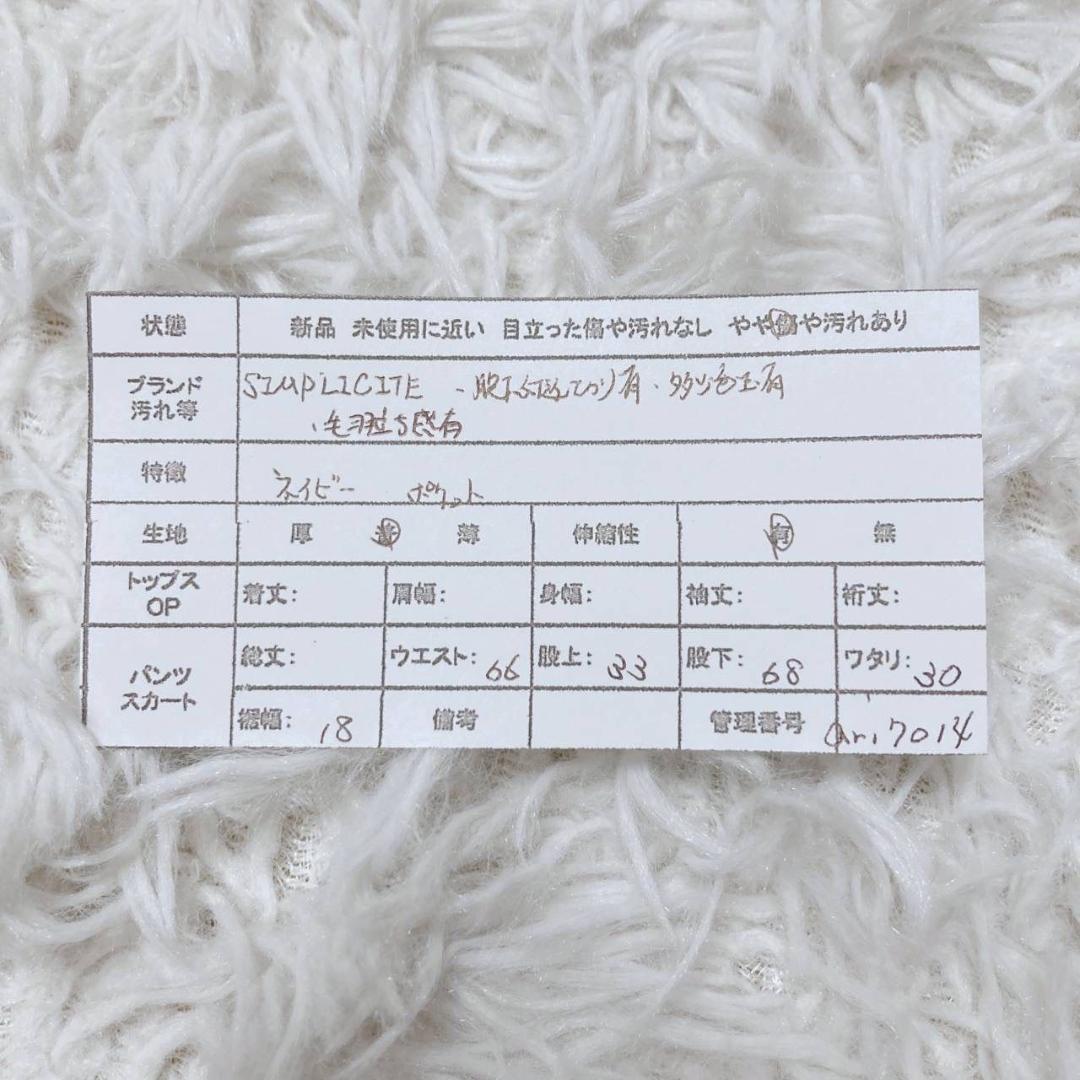 状態 新品 未使用に近い 目立った傷や汚れなし やや傷や汚れあり
ブランド
汚れ等
SIMPLICITE ・股下 有・ 有
・毛羽立ち感有
特徴 ネイビー ポケット
生地 厚 普 薄 伸縮性 有 無
トップス
OP
着丈: 肩幅: 身幅: 袖丈: 裄丈:
パンツ
スカート
総丈: ウエスト: 66 股上: 33 股下: 68 ワタリ: 30
裾幅: 18 備考 管理番号 7014